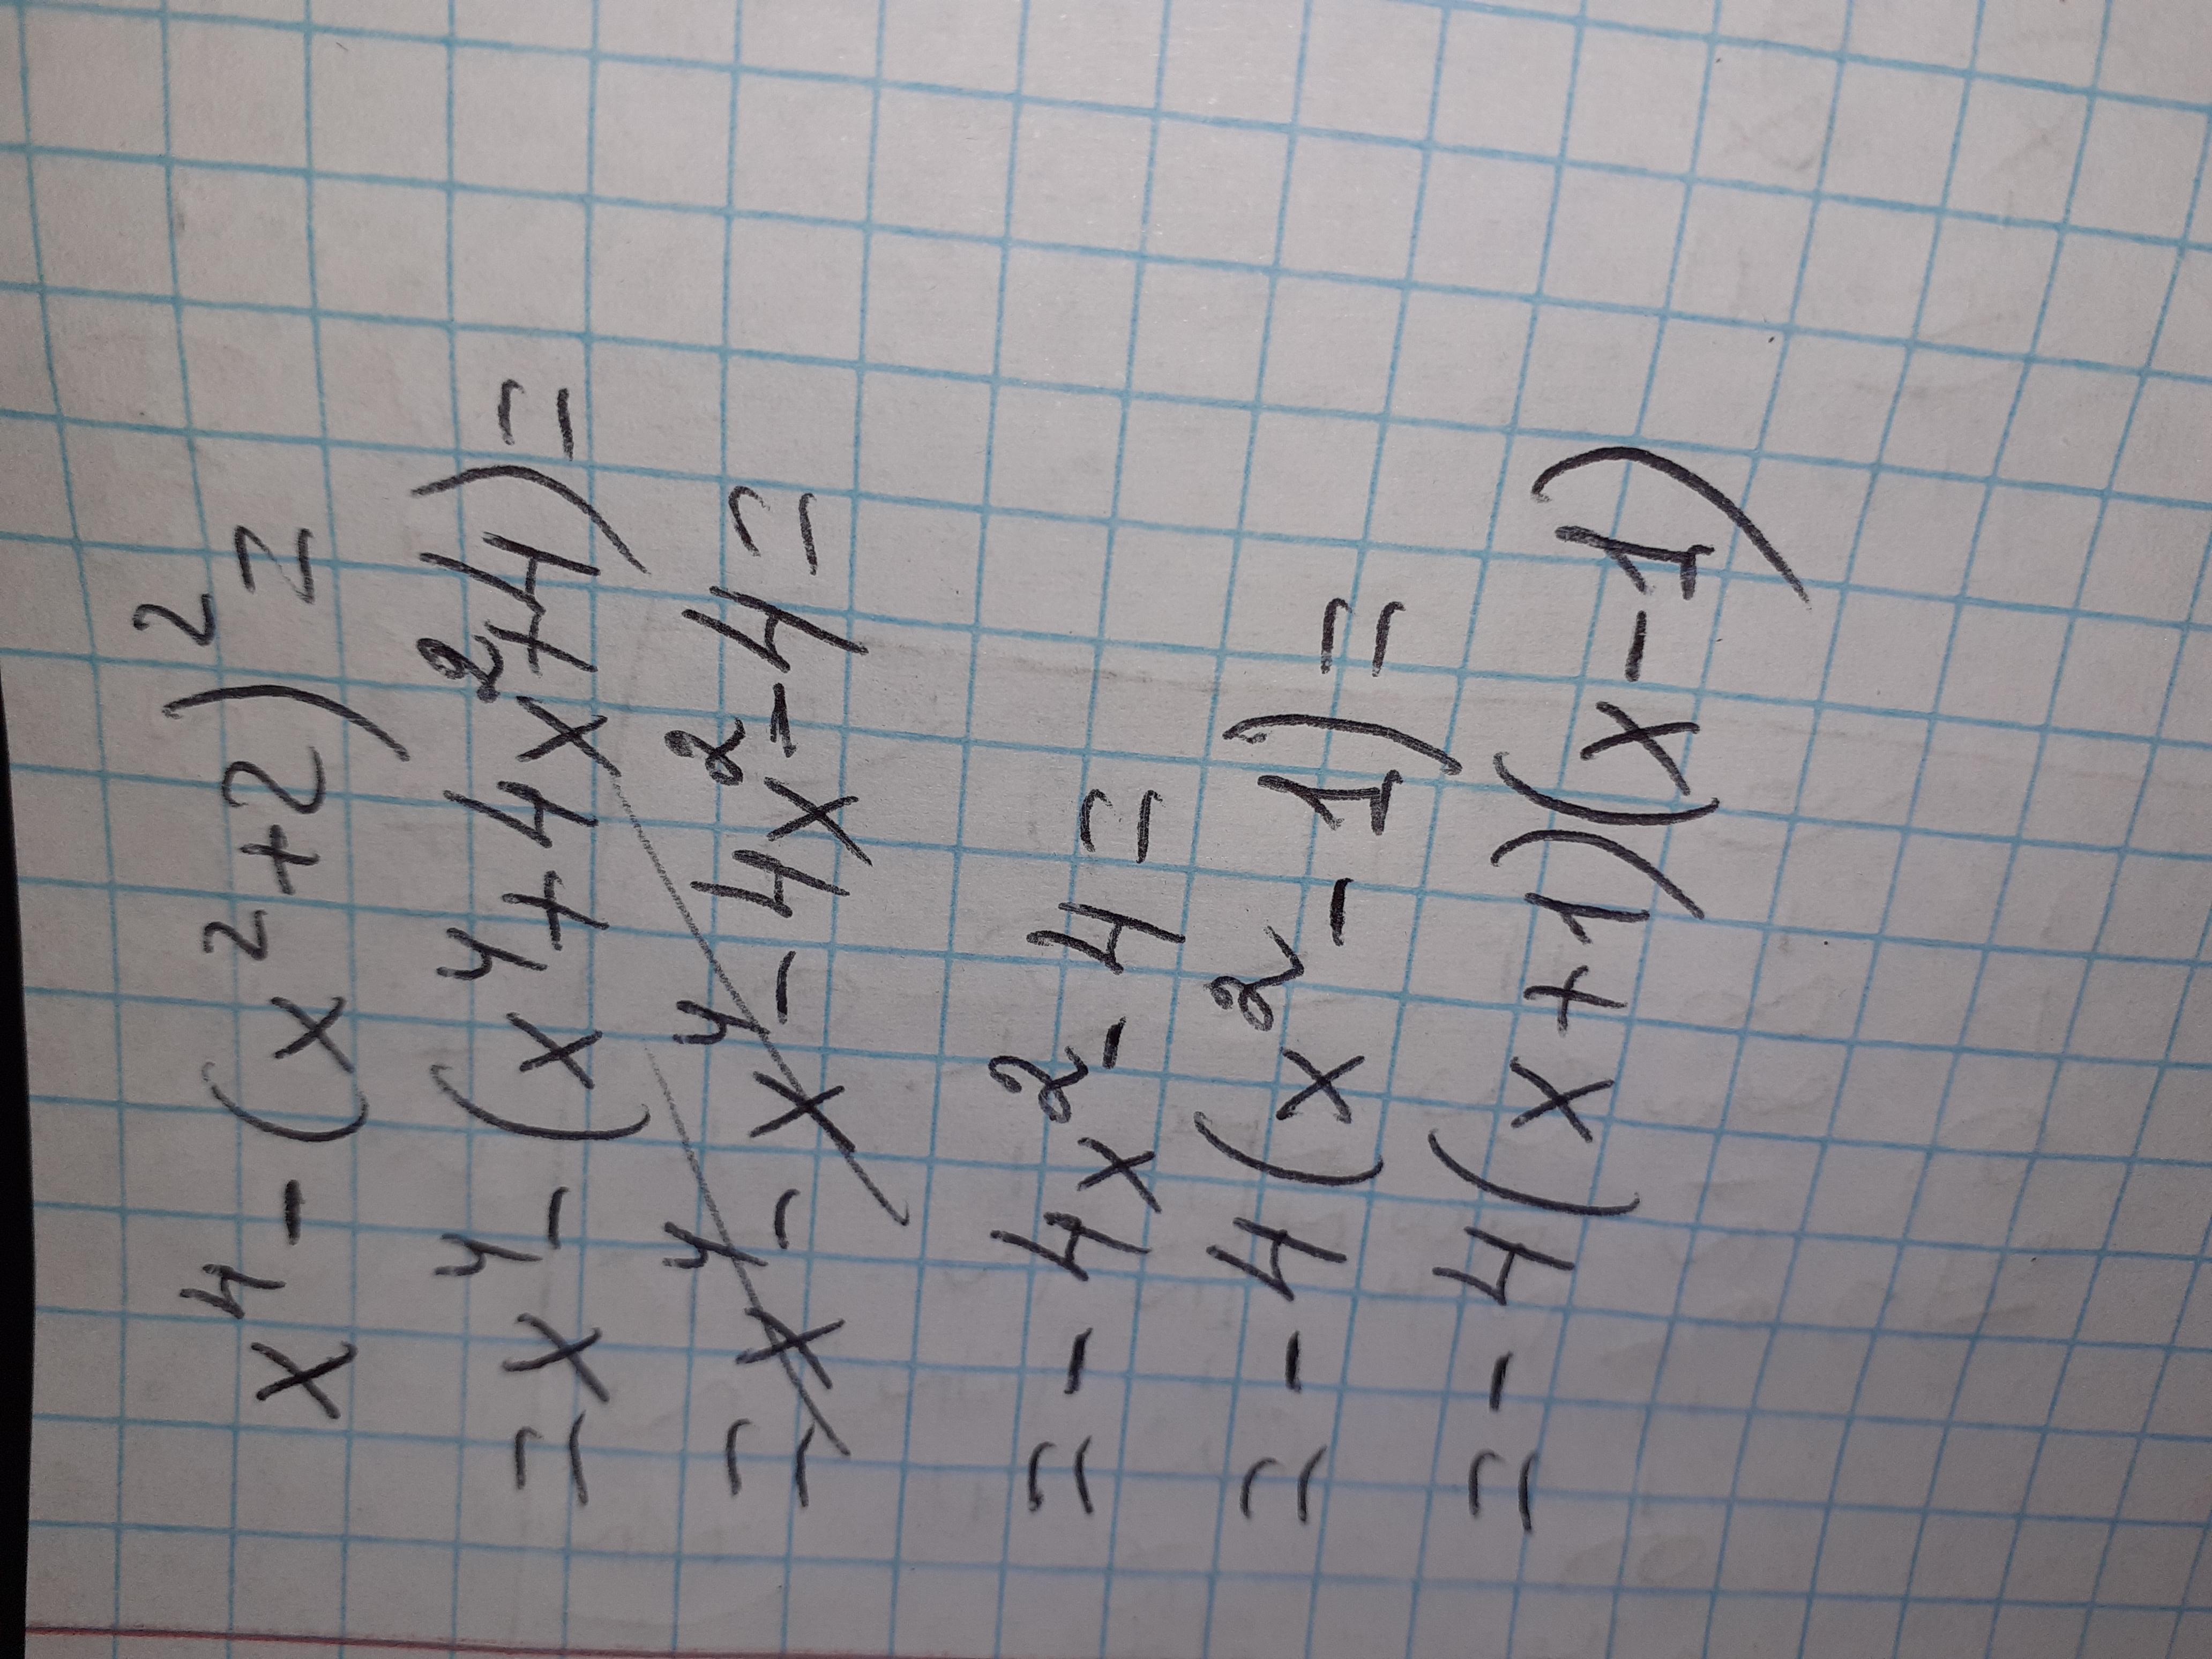 x⁴ - (x² + 2)² =
= x⁴ - (x⁴ + 4x² + 4) =
= x⁴ - x⁴ - 4x² - 4 =
= - 4x² - 4 =
= - 4(x² - 1) =
= - 4(x + 1)(x - 1)